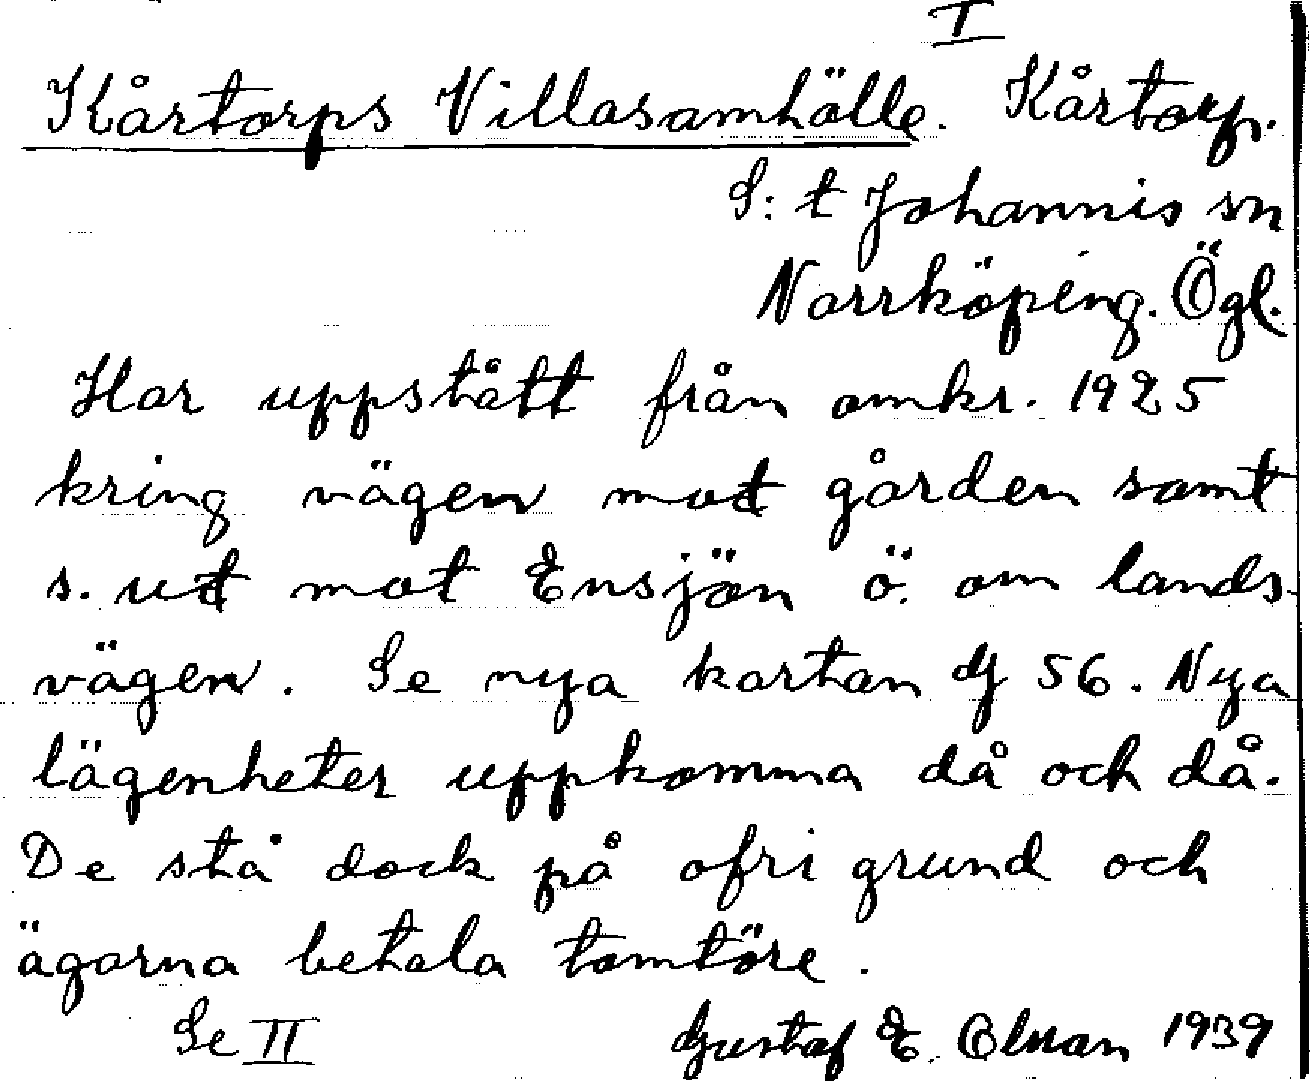 I
Kårtorps Villasamhälle. Kårtorp.
S:t Johannis sn
Norrköping. Ögl.
Har uppstått från omkr. 1925
kring vägen mot gården samt
s. ut mot Ensjön ö. om lands-
vägen. Se nya kartan dj 56. Nya
lägenheter uppkomma då och då.
De stå dock på ofri grund och
ägarna betala tomtöre.
Se II Gustaf E. Olman 1939